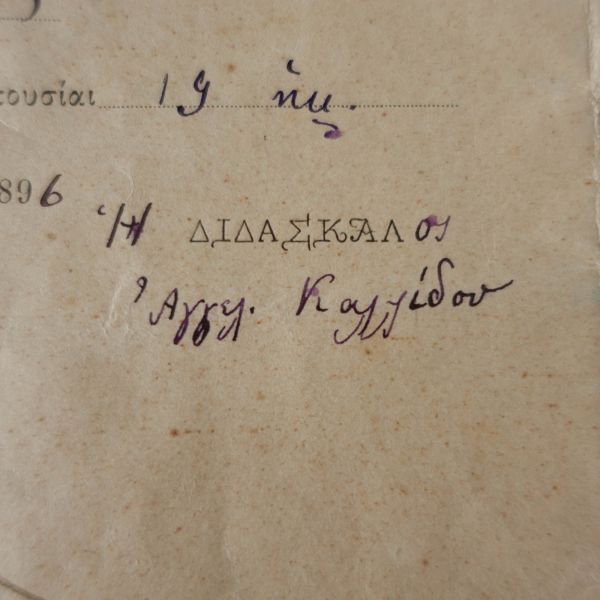 ουσίαι 19 ἡμ.
896
Ἡ ΔΙΔΑΣΚΑΛος
Ἀγγελ. Καλλίδου